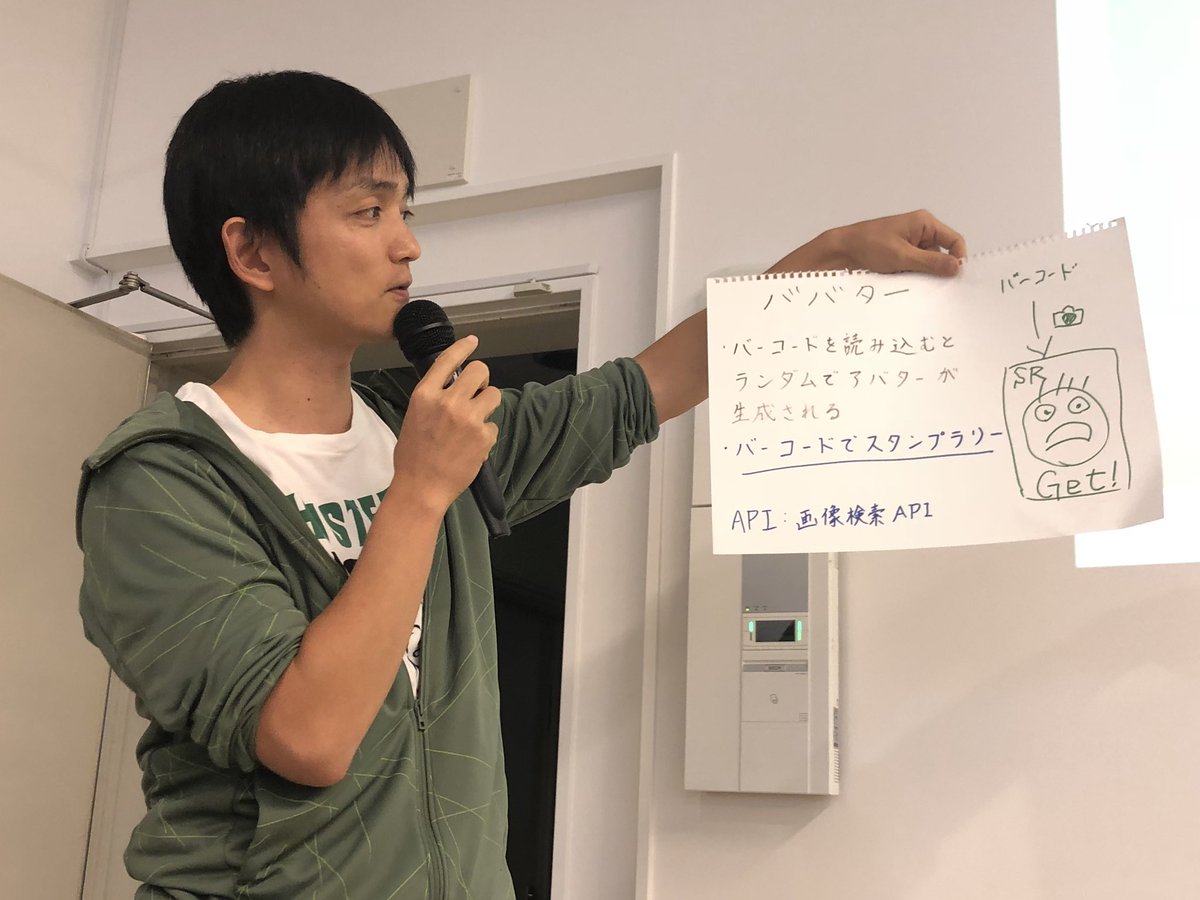 ババター
・バーコードを読み込むと
ランダムでアバターが
生成される
・バーコードでスタンプラリー
API：画像検索API
バーコード
SR
Get!